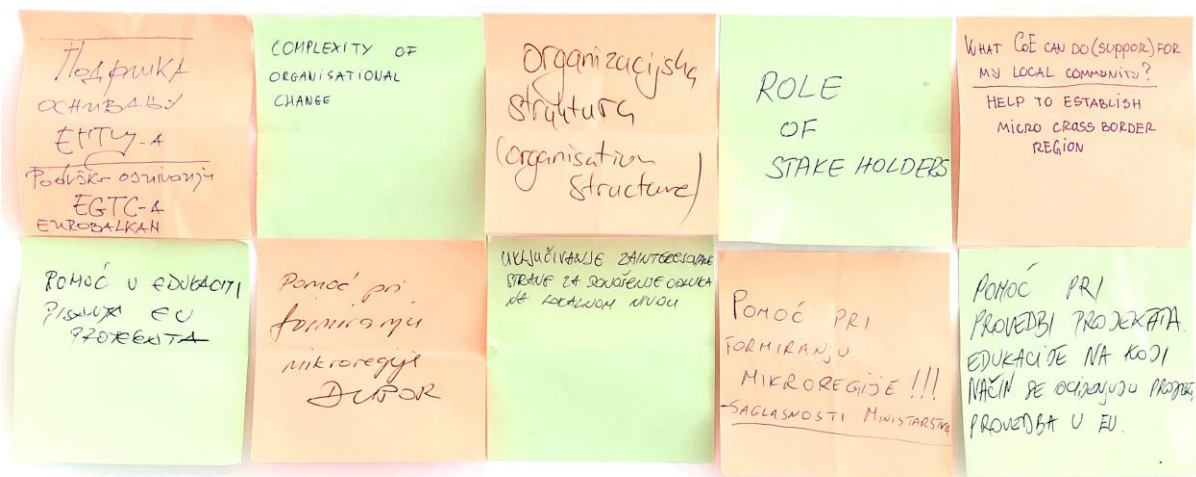 Подршка
оснивању
ЕГТЦ-а
Podrška osnivanju
EGTC-a
EUROBALKAN
COMPLEXITY OF
ORGANISATIONAL
CHANGE
organizacijska
struktura
(organisation
structure)
ROLE
OF
STAKE HOLDERS
WHAT CoE CAN DO (SUPPOR) FOR
MY LOCAL COMMUNITY?
HELP TO ESTABLISH
MICRO CROSS BORDER
REGION
POMOĆ U EDUKACIJI
PISANJA EU
PROJEKATA
Pomoć pri
formiranju
mikroregije
UKLJUČIVANJE ZAINTERESOVANE
STRANE ZA DONOŠENJE ODLUKA
NA LOKALNOM NIVOU
POMOĆ PRI
FORMIRANJU
MIKROREGIJE !!!
SAGLASNOSTI MINISTARSTVA
POMOĆ PRI
PROVEDBI PROJEKATA.
EDUKACIJE NA KOJI
NAČIN SE OCIJENJUJU
PROVEDBA U EU.